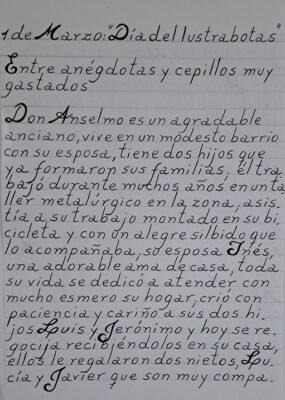 1 de Marzo: "Día del lustrabotas"
Entre anégdotas y cepillos muy
gastados
Don Anselmo es un agradable
anciano, vive en un modesto barrio
con su esposa, tiene dos hijos que
ya formaron sus familias, él tra
bajó durante muchos años en un ta
ller metalúrgico en la zona, asis
tía a su trabajo montado en su bi
cicleta y con un alegre silbido que
lo acompañaba, su esposa Inés,
una adorable ama de casa, toda
su vida se dedicó a atender con
mucho esmero su hogar, crió con
paciencia y cariño a sus dos hi
jos Luis y Jerónimo y hoy se re
gocija recibiéndolos en su casa,
ellos le regalaron dos nietos, Lu
cía y Javier que son muy compa.